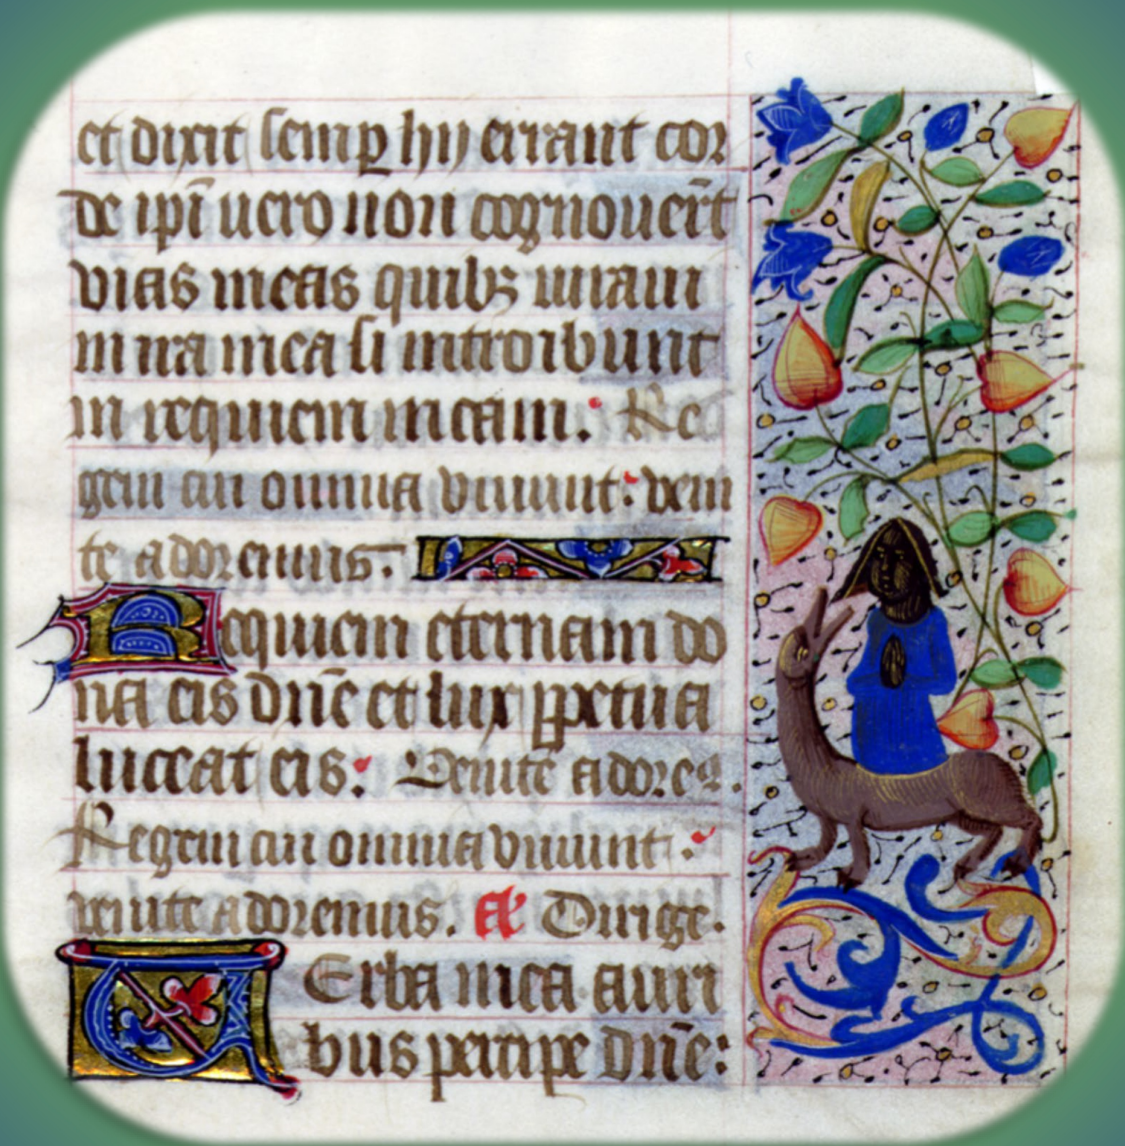 et dixit semp hij errant cor
de ipi uero non cognouert
vias meas quibs iuraui
in ira mea si introibunt
in requiem meam. Re
gem cui omnia viuunt: veni
te adoremus.
Requiem eternam do
na eis dne et lux ppetua
luceat eis: Uenite adore
Regem cui omnia viuunt.
venite adoremus. añ Dirige.
Uerba mea auri
bus percipe dne: